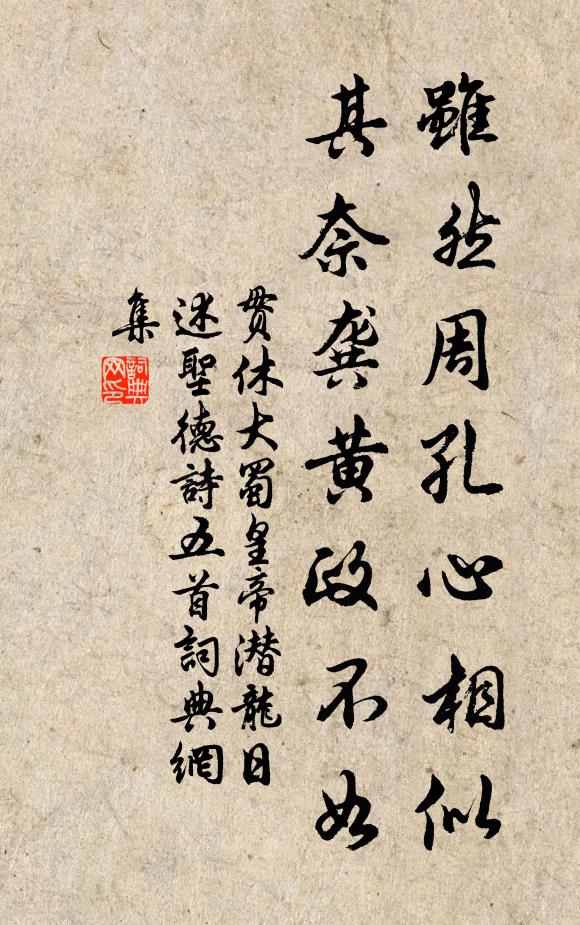 雖然周孔心相似
其奈龔黃政不如
貫休大蜀皇帝潜龍日
述聖德詩五首詞典網
集
詞典
网印